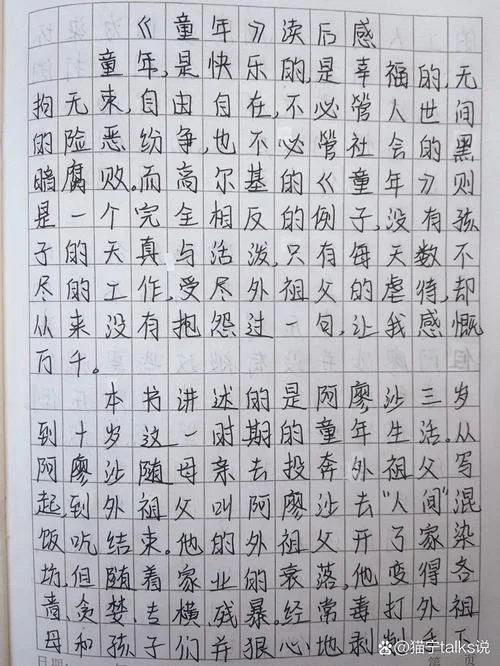 《童年》读后感
童年,是快乐的,是幸福的,无
拘无束,自由自在,不必管人世间
的险恶纷争,也不必管社会的黑
暗腐败。而高尔基的《童年》则
是一个完全相反的例子,没有孩
子的天真与活泼,只有每天数不
尽的工作,受尽外祖父的虐待,却
从来没有抱怨过一句,让我感慨
万千。
本书讲述的是阿廖沙三岁
到十岁这一时期的童年生活。从
阿廖沙随母亲去投奔外祖父写
起,到外祖父叫阿廖沙去“人间”混
饭吃结束。他的外祖父开了家染
坊,但随着家业的衰落,他变得吝
啬、贪婪、专横、残暴。经常毒打外祖
母和孩子们并狠心地剥
日期:
@猫宁talks说